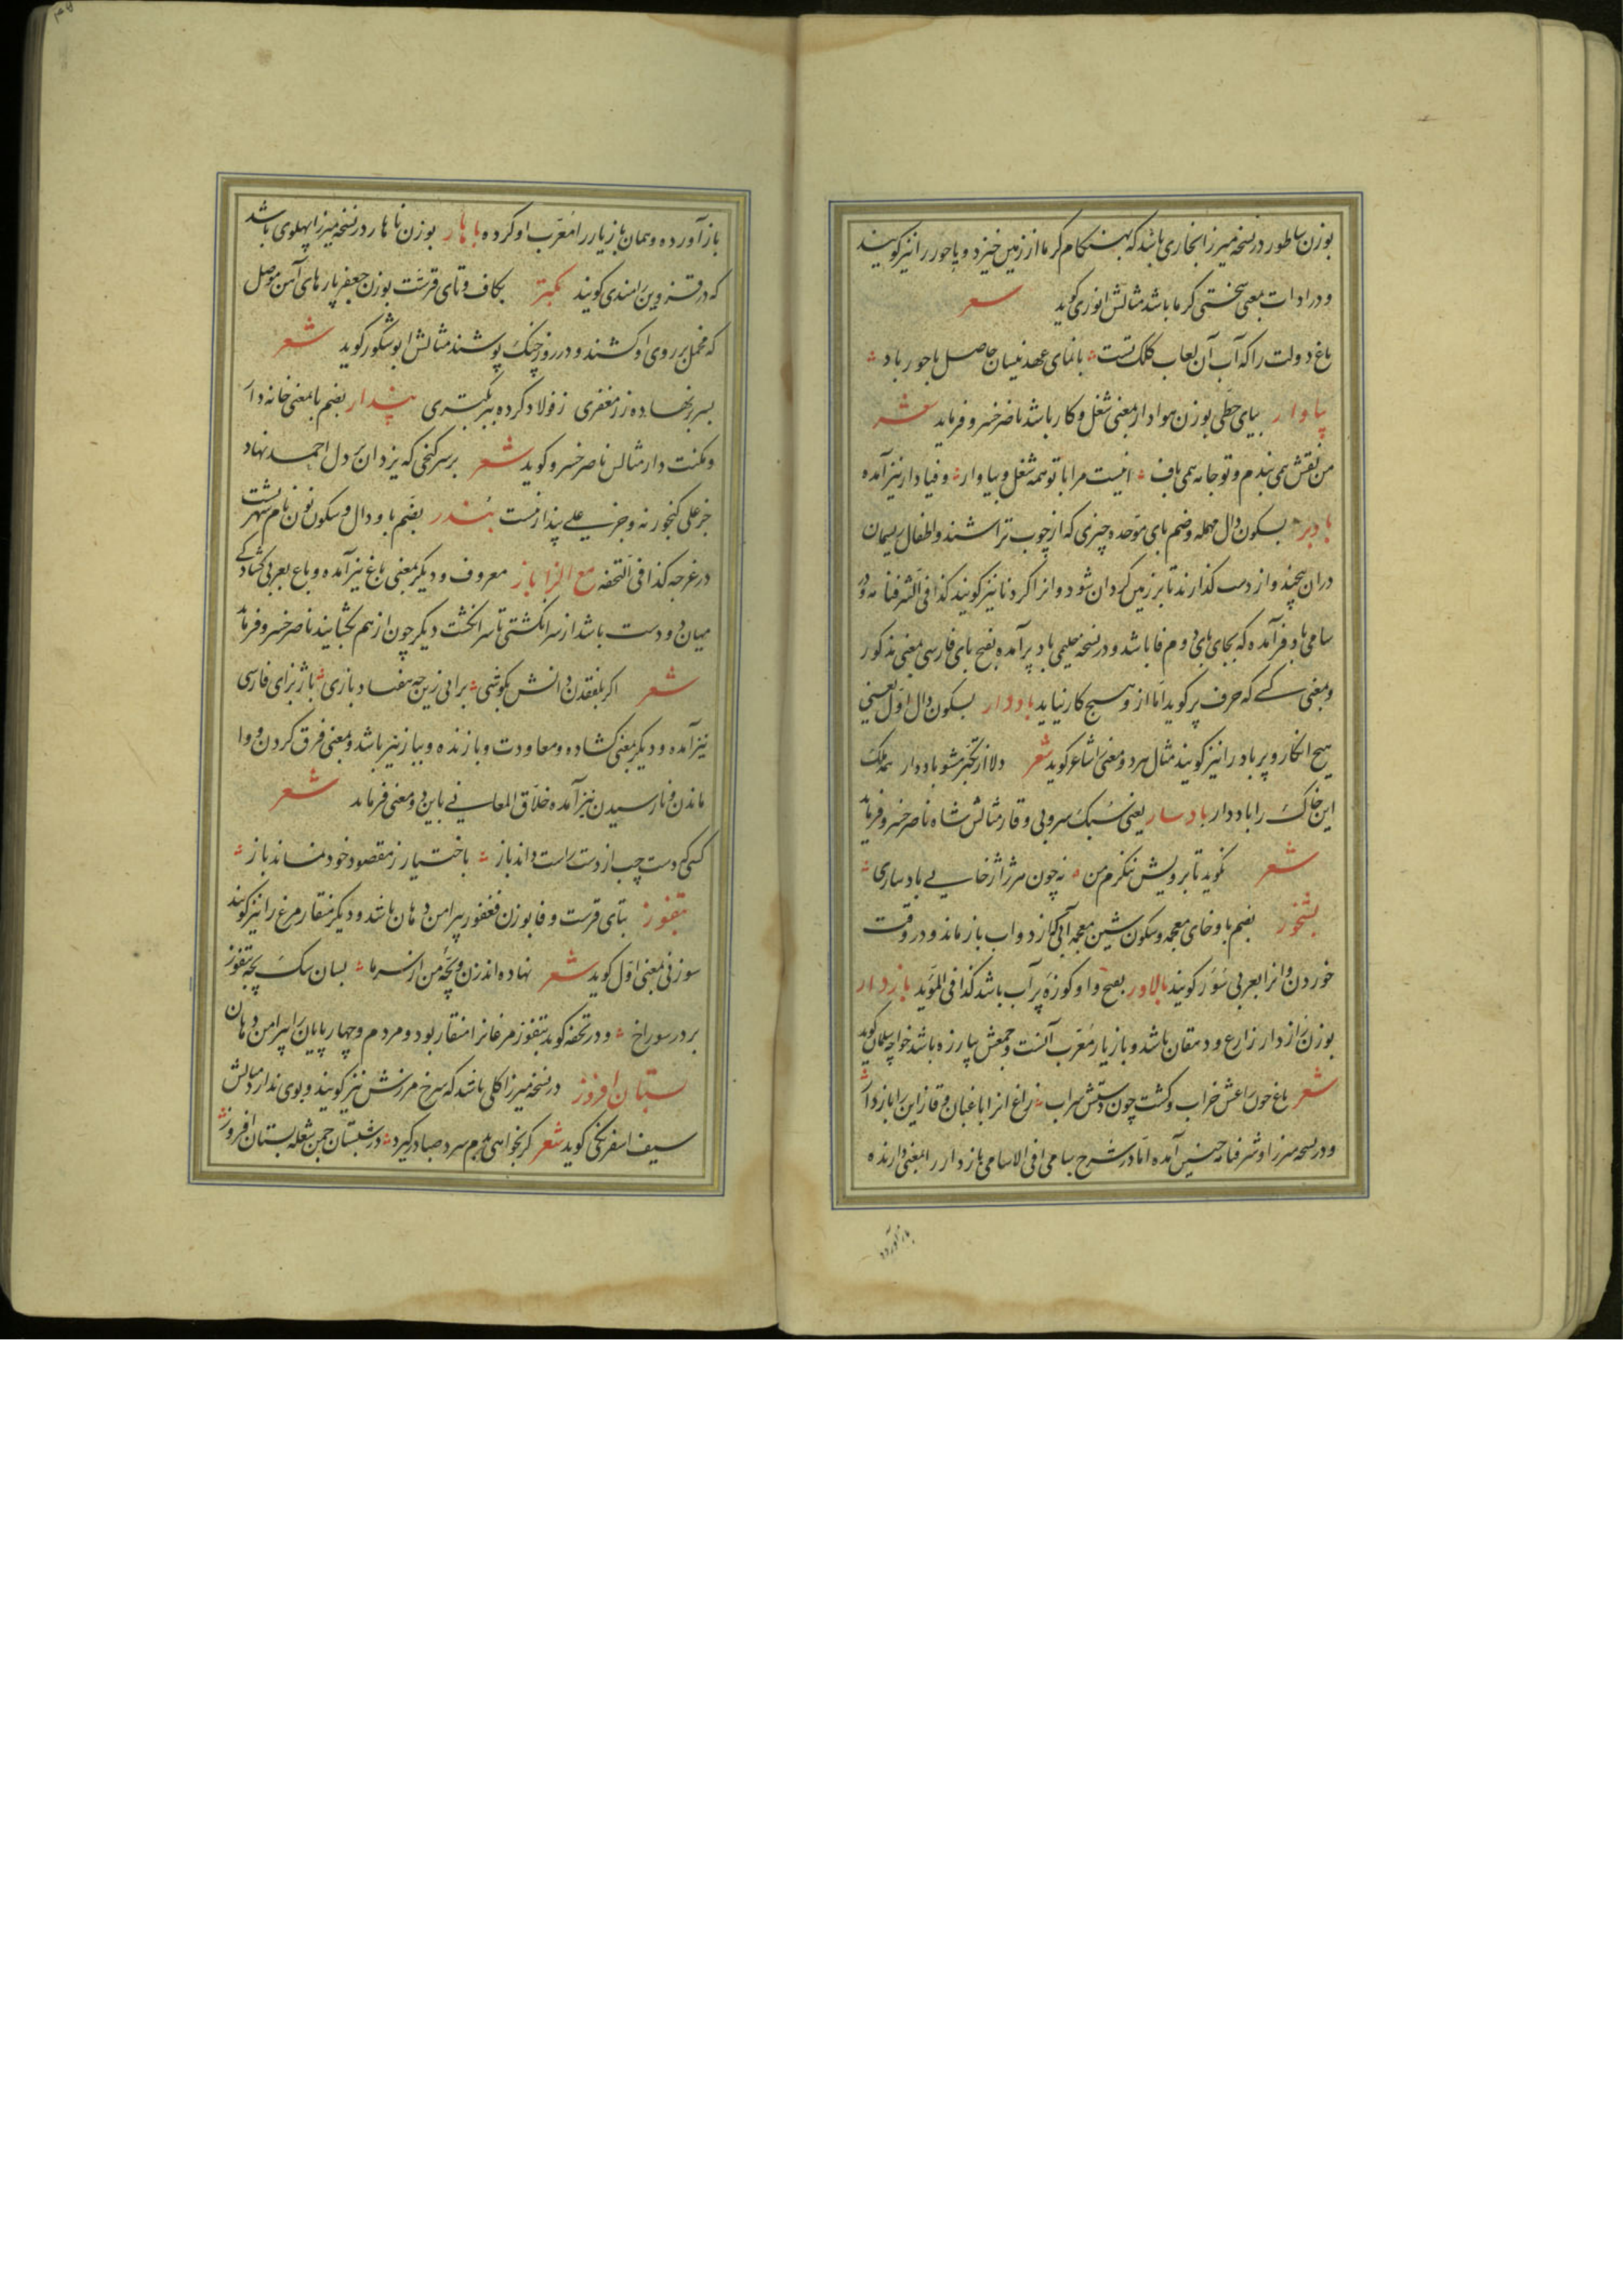 بوزن ساطور در نسخه میرزا بخاری باشد که بهنکام کرما از زمین خیزد و باحور را نیز کویند
و در ادات بمعنی سختی کرما باشد مثالش انوری کوید شعر
باغ دولت را که آب آن لعاب کلک تست با نمای عهد نیسان حاصل باحور باد
بیاوار بیای حطی بوزن هوادار بمعنی شغل و کار باشد ناصر خسرو فرماید شعر
من نقش همی بندم و تو جامه همی باف اینست مرا با تو همه شغل و بیاوار و فیادار نیز آمده
بادبر بسکون دال مهمله و ضم بای موحده چیزی که از چوب تراشند و اطفال ریسمان
در ان پیچند و از دست کذارند تا بر زمین کردان شود و انرا کردنا نیز کویند کذا فی الشرفنامه و در
سامی بادفر آمده که بجای بای دوم فا باشد و در نسخه حلیمی بادپر آمده بفتح بای فارسی بمعنی مذکور
و بمعنی کسی که حرف پر کوید اما از و هیچ کار نیاید باددار بسکون دال اول یعنی
هیچ انکار و پر باد را نیز کویند مثال هر دو معنی شاعر کوید شعر دلا از تکبر مشو باددار همه ملک
این خاک را باد دار بادسار یعنی سبک سر و بی وقار مثالش شاه ناصر خسرو فرماید
شعر نکوید تا برویش ننکرم من نه چون هر ژاژخایی بادساری
بشخور بضم با و خای معجمه و سکون شین معجمه آبی که از دواب باز ماند در وقت
خوردن و انرا بعربی سؤر کویند بالاور بفتح واو کوزه پر آب باشد کذا فی المؤید بازدار
بوزن رازدار زارع و دهقان باشد و بازیار معرب آنست و جمعش بیازره باشد خواجه سلمان کوید
شعر باغ خون راعش خراب و کشت چون دستش سراب زاغ انرا باغبان و قاز این را بازدار
و در نسخه میرزا و شرفنامه چنین آمده اما در شرح سامی فی الاسامی بازدار را بمعنی دارنده
باز آورده
باز آورده و همان بازیار را معرب او کرده باهار بوزن ناهار در نسخه میرزا پهلوی باشد
که در قزوین رامندی کویند بکتر بکاف و تای قرشت بوزن جعفر پارهای آهن موصل
که مخمل بر روی او کشند و در روز جنک پوشند مثالش ابوشکور کوید شعر
بسر بر نهاده ز زر مغفری ز فولاد کرده ببر بکتری بندار بضم با بمعنی خانه دار
و مکنت دار مثالش ناصر خسرو کوید شعر بر سر کنجی که یزدان در دل احمد نهاد
جز علی کنجور نه و جز علی بندار نیست بندر بضم با و دال و سکون نون نام شهریست
در غرجه کذا فی التحفه مع الزا باز معروف و دیکر بمعنی باغ نیز آمده و باع بعربی کشادکی
میان دو دست باشد از سر انکشتی تا سر انکشت دیکر چون از هم بکشایند ناصر خسرو فرماید
شعر اکر بلفقدن دانش بکوشی برآیی زین چه هفتاد بازی باژ بزای فارسی
نیز آمده و دیکر بمعنی کشاده و معاودت و بازنده و بباز نیز باشد و بمعنی فرق کردن و وا
ماندن و نارسیدن نیز آمده خلاق المعانی باین دو معنی فرماید شعر
کسی کو دست چپ از دست راست داند باز باختیار ز مقصود خود نماند باز
بتفوز بتای قرشت و فا بوزن فغفور پیرامن دهان باشد و دیکر منقار مرغ را نیز کویند
سوزنی بمعنی اول کوید شعر نهاده اند زن و بچه من از سرما بسان سک بچه بتفوز
بر در سوراخ و در تحفه کوید بتفوز مرغانرا منقار بود و مردم و چهارپایان را پیرامن دهان
بستان افروز در نسخه میرزا کلی باشد که سرخ مرزش نیز کویند و بوی ندارد مثالش
سیف اسفرنکی کوید شعر کر بخواهی بدم سرد صبا درکیرد در شبستان چمن شعله بستان افروز